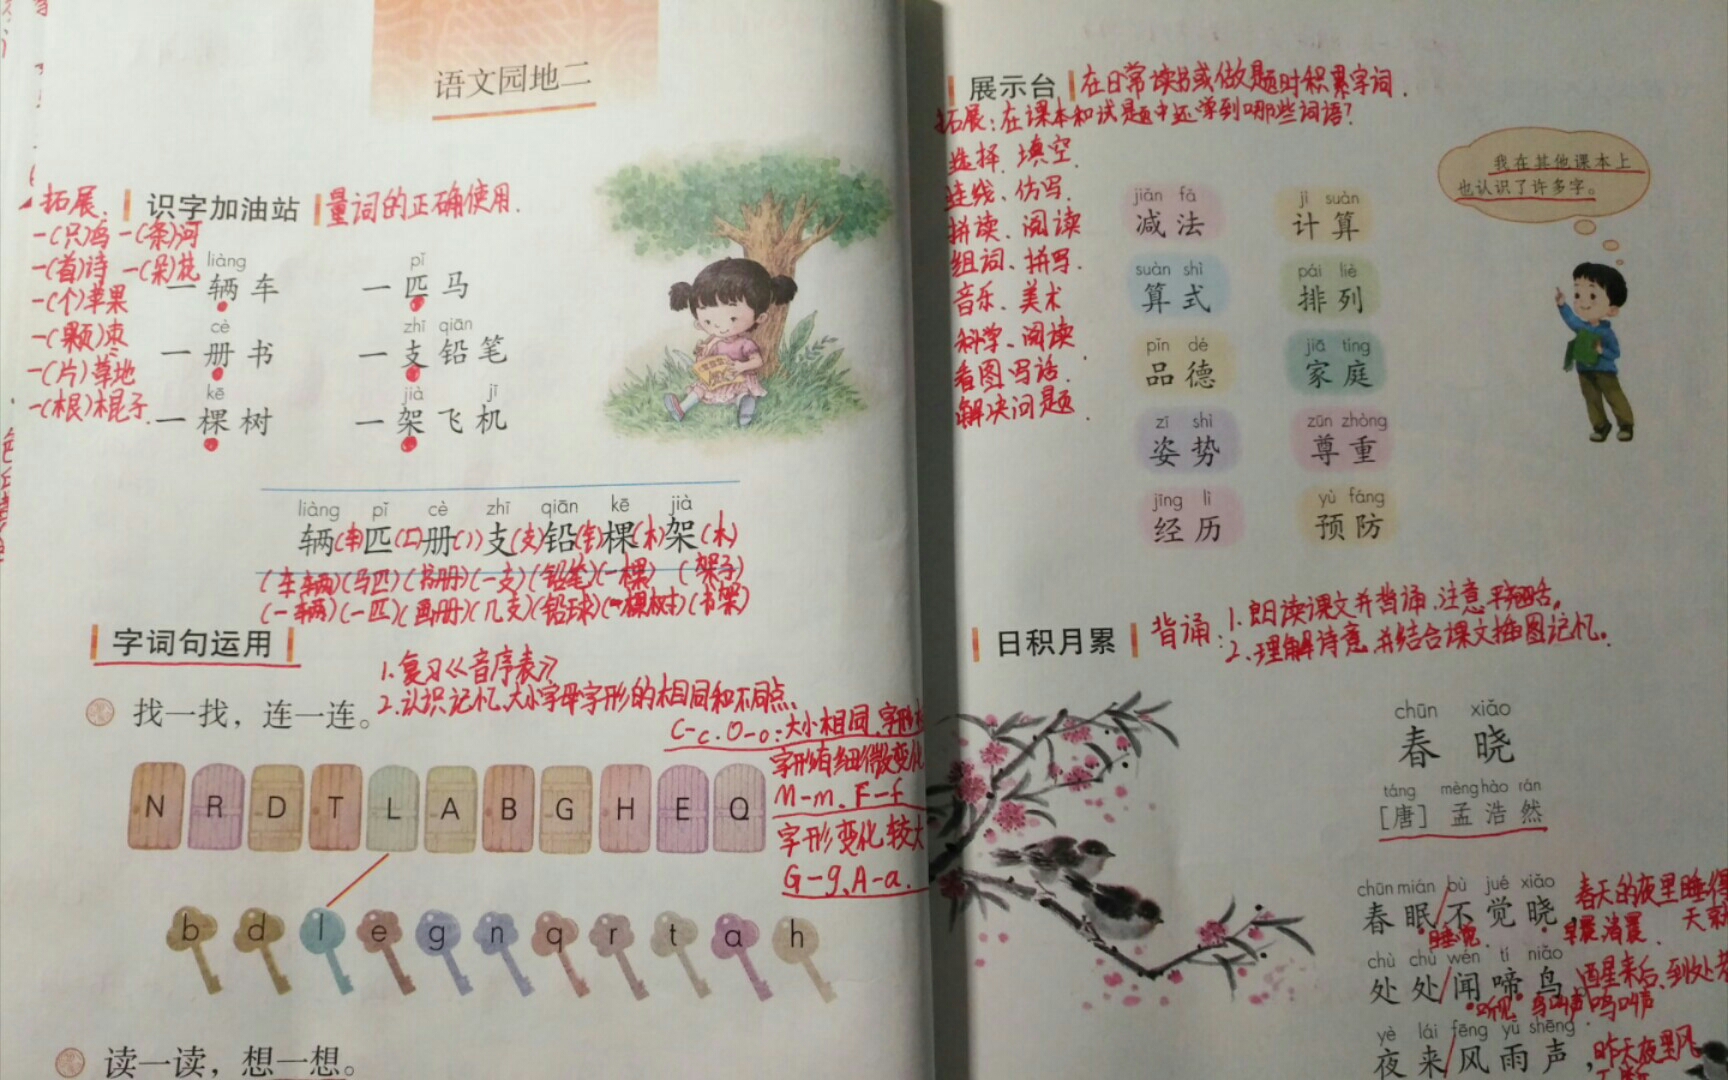 语文园地二
识字加油站
量词的正确使用.
拓展.
一(只)鸟 一(条)河
一(首)诗 一(朵)花
一(个)苹果
一(颗)枣
一(片)草地
一(根)棍子.
liàng pǐ
一辆车 一匹马
cè zhī qiān
一册书 一支铅笔
kē jià jī
一棵树 一架飞机
liàng pǐ cè zhī qiān kē jià
辆(车)匹(匚)册(丿)支(支)铅(钅)棵(木)架(木)
(车辆)(马匹)(书册)(一支)(铅笔)(一棵)(架子)
(一辆)(一匹)(画册)(几支)(铅球)(一棵树)(书架)
字词句运用
1.复习《音序表》
2.认识记忆大小字母字形的相同和不同点.
找一找，连一连。
C-c.O-o:大小相同.字形
字形有细微变化
M-m.F-f
字形变化较大
G-g、A-a.
N R D T L A B G H E Q
b d l e g n q r t a h
读一读，想一想。
展示台
在日常读书或做题时积累字词.
拓展:在课本和试题中还学到哪些词语?
选择.填空.
连线、仿写.
拼读.阅读
组词、拼写.
音乐、美术
科学、阅读
看图写话.
解决问题.
我在其他课本上
也认识了许多字。
jiǎn fǎ jì suàn
减法 计算
suàn shì pái liè
算式 排列
pǐn dé jiā tíng
品德 家庭
zī shì zūn zhòng
姿势 尊重
jīng lì yù fáng
经历 预防
日积月累
背诵:1.朗读课文并背诵.注意平翘舌。
2.理解诗意.并结合课文插图记忆。
chūn xiǎo
春晓
táng mèng hào rán
[唐]孟浩然
chūn mián bù jué xiǎo
春眠/不觉晓，
春天的夜里睡得
睡觉. 早晨清晨. 天
chù chù wén tí niǎo
处处/闻啼鸟。
醒来后.到处
听见 鸟叫声 鸣叫声
yè lái fēng yǔ shēng
夜来/风雨声，
昨天夜里风